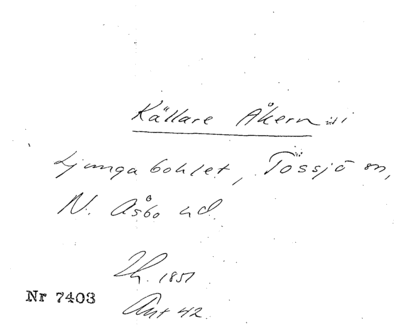 Källare Åkern i
Ljungabohlet, Tössjö sn,
N. Åsbo hd.
Lh. 1851
Nr 7403
Akt 42